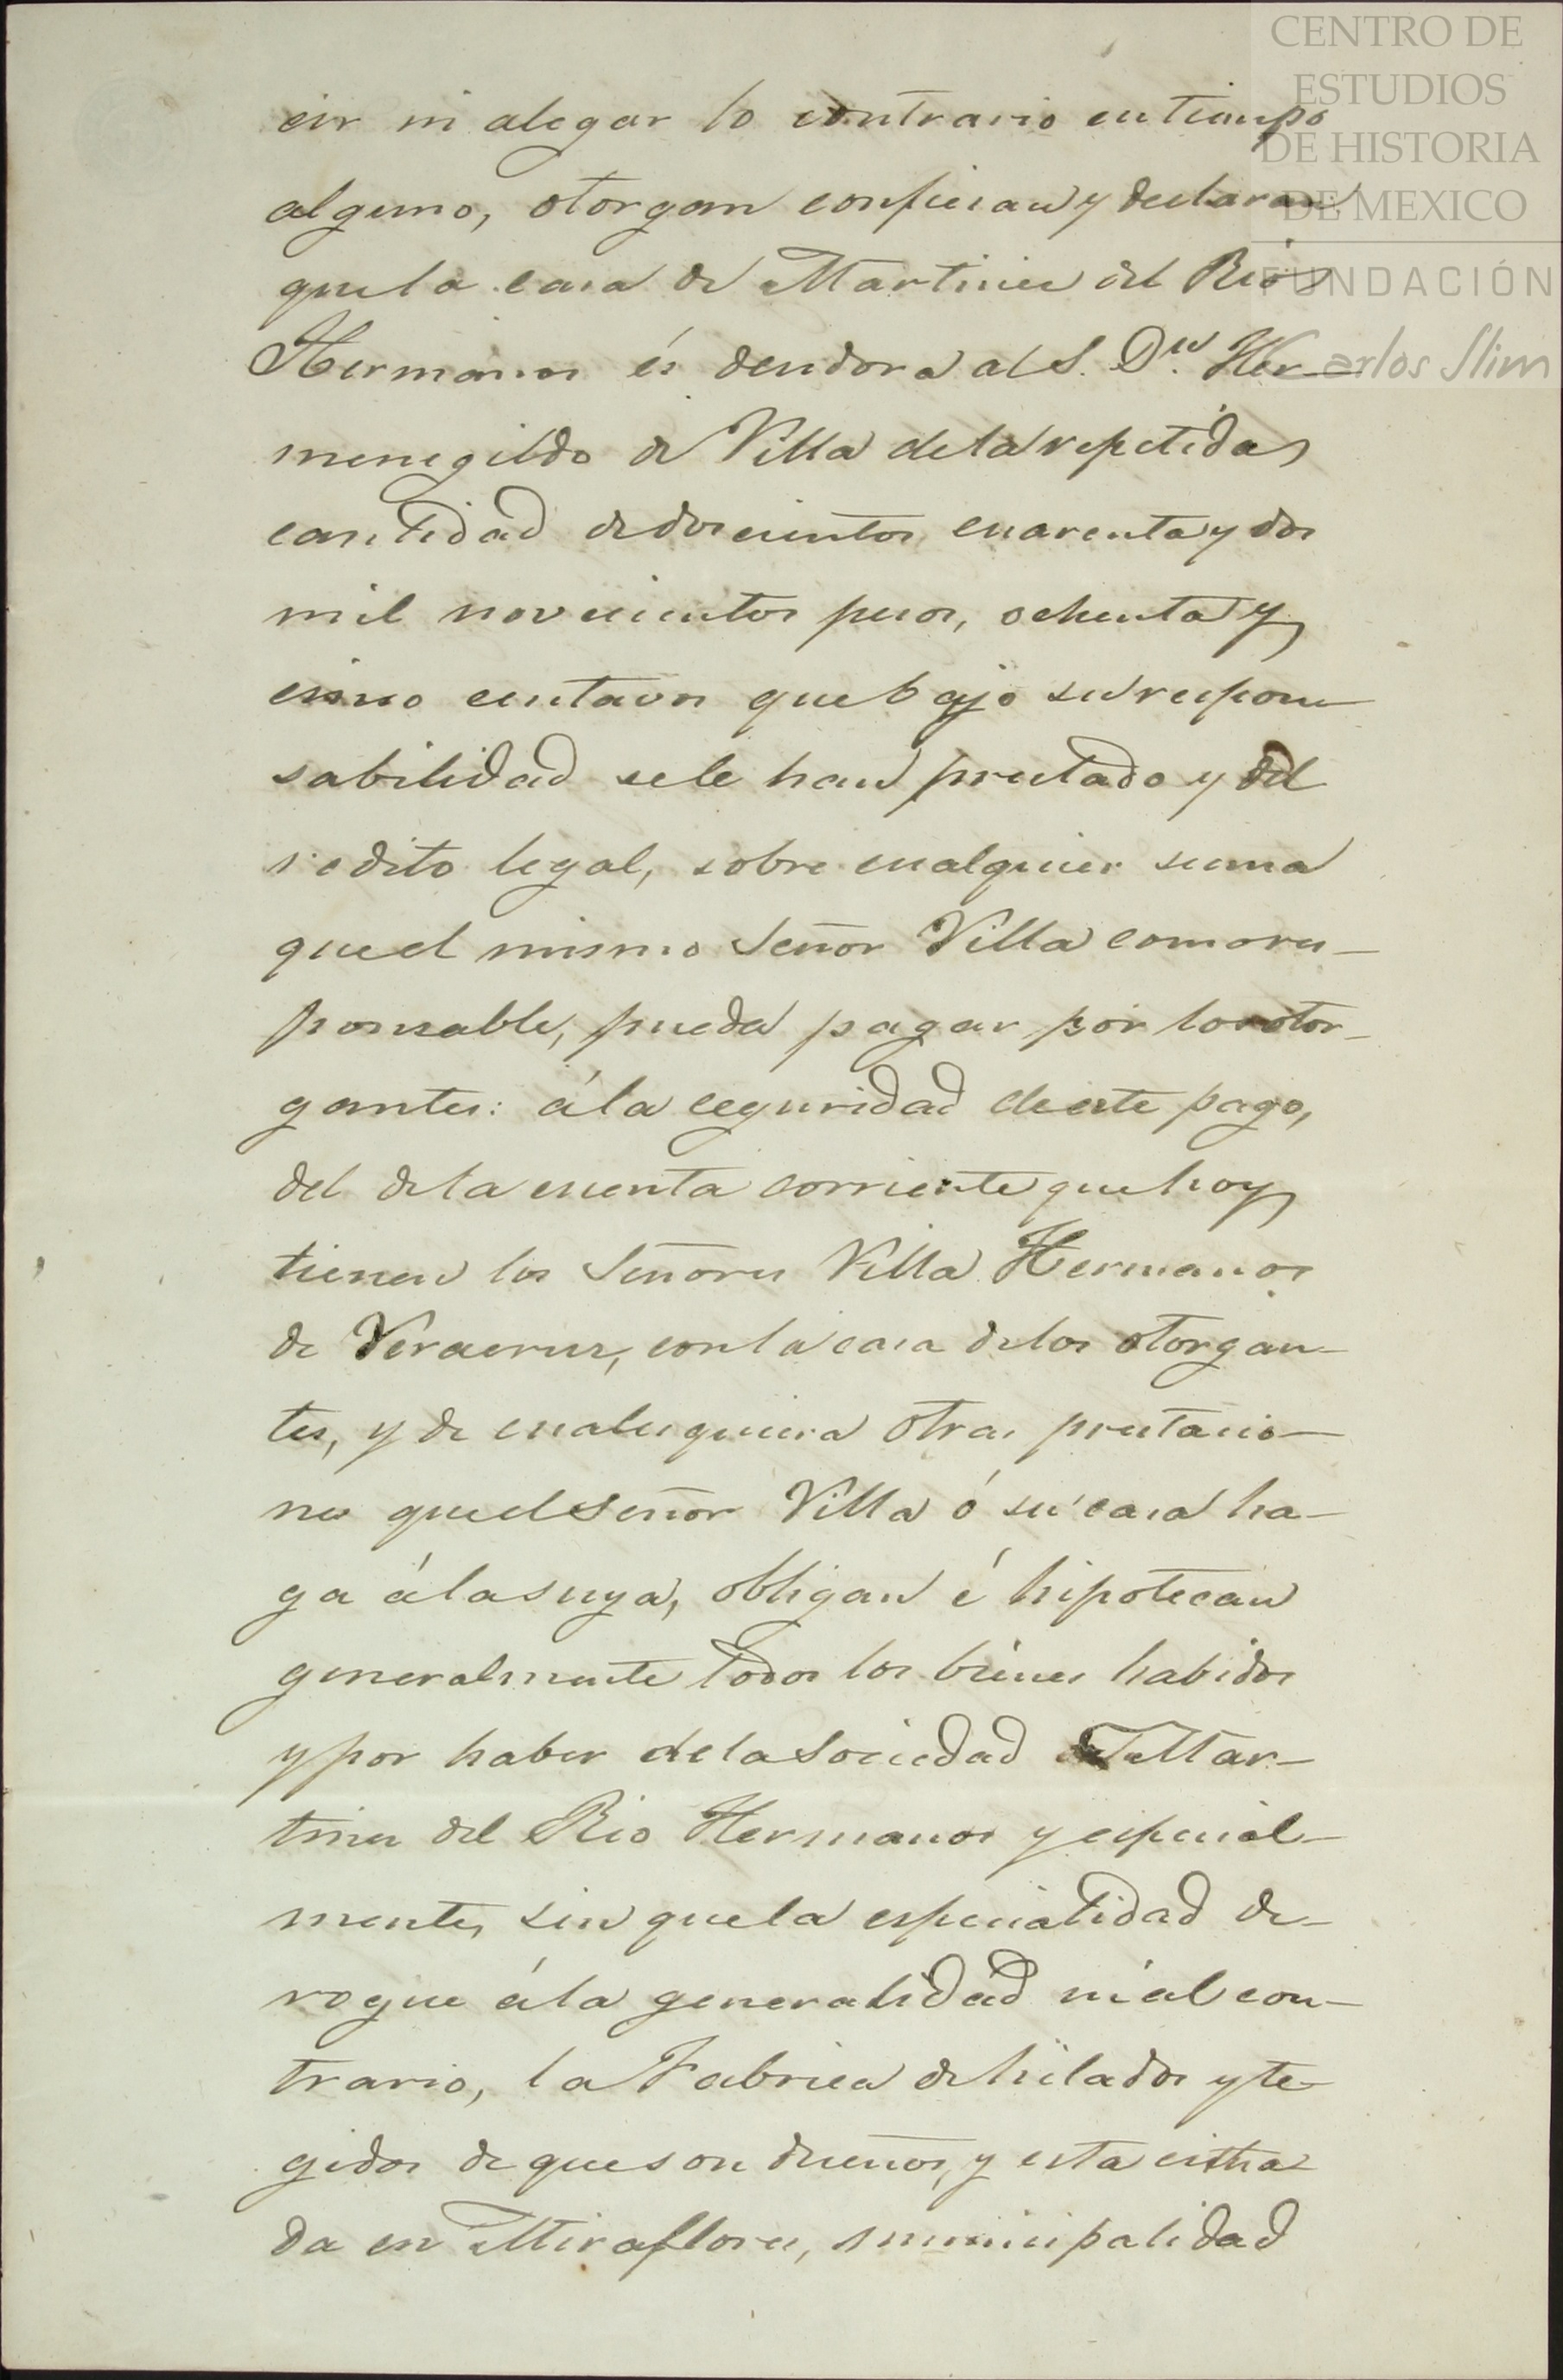 CENTRO DE
ESTUDIOS
DE HISTORIA
DE MEXICO
FUNDACIÓN
Carlos Slim
cir ni alegar lo contrario en tiempo
alguno, otorgan confiesan y declaran
que la casa de Martinez del Rio
Hermanos és deudora al S. Dn. Her-
menegildo de Villa de la repetida
cantidad de doscientos cuarenta y dos
mil novecientos pesos, ochenta y
cinco centavos que bajo su respon-
sabilidad se le han prestado y del
redito legal, sobre cualquier suma
que el mismo Señor Villa como res-
ponsable, pueda pagar por los otor-
gantes: á la seguridad de este pago,
del de la cuenta corriente que hoy
tienen los Señores Villa Hermanos
de Veracruz, con la casa de los otorgan-
tes, y de cualesquiera otras prestacio-
nes que el Señor Villa ó su casa ha-
ga á la suya, obligan é hipotecan
generalmente todos los bienes habidos
y por haber de la Sociedad de Mar-
tinez del Rio Hermanos y especial-
mente, sin que la especialidad de-
rogue á la generalidad ni al con-
trario, la Fabrica de hilados y te-
gidos de que son dueños, y esta citua
da en Miraflores, municipalidad